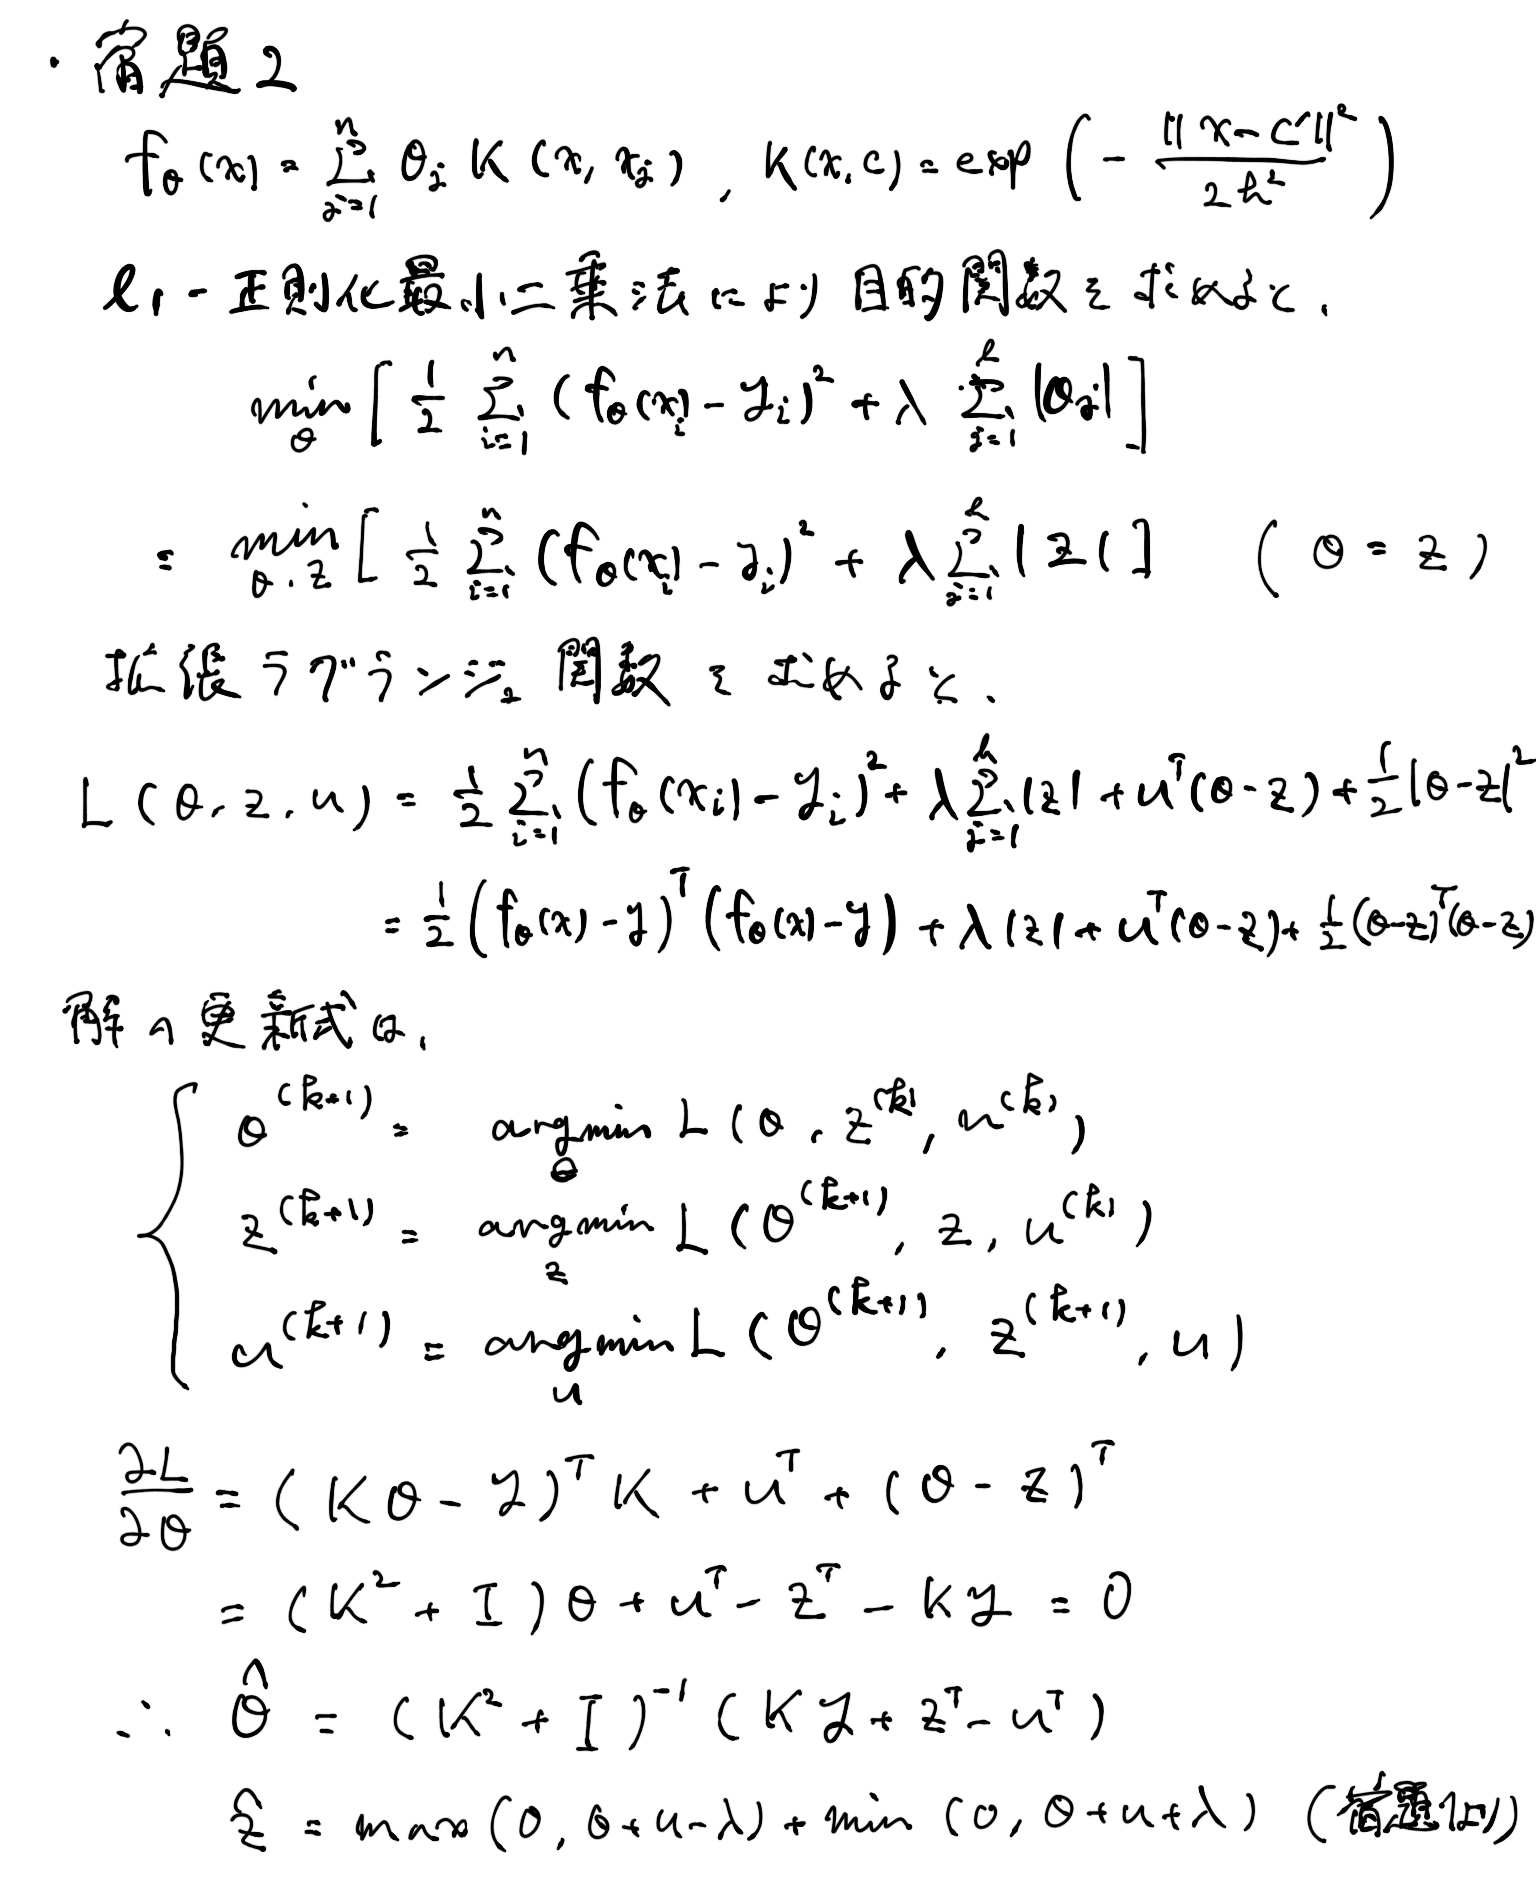 ・宿題2
f_θ(x) = Σ_{j=1}^{n} θ_j K(x, x_j), K(x, c) = exp(-‖x-c‖² / 2h²)
ℓ₁-正則化最小二乗法により目的関数を求めると、
min_θ [ 1/2 Σ_{i=1}^{n} (f_θ(x_i) - y_i)² + λ Σ_{j=1}^{n} |θ_j| ]
= min_{θ, z} [ 1/2 Σ_{i=1}^{n} (f_θ(x_i) - y_i)² + λ Σ_{j=1}^{n} |z| ] (θ = z)
拡張ラグランジュ関数を求めると、
L(θ, z, u) = 1/2 Σ_{i=1}^{n} (f_θ(x_i) - y_i)² + λ Σ_{j=1}^{n} |z| + u^T(θ-z) + 1/2 |θ-z|²
= 1/2 (f_θ(x) - y)^T (f_θ(x) - y) + λ|z| + u^T(θ-z) + 1/2 (θ-z)^T(θ-z)
解の更新式は、
θ^{(k+1)} = argmin_θ L(θ, z^{(k)}, u^{(k)})
z^{(k+1)} = argmin_z L(θ^{(k+1)}, z, u^{(k)})
u^{(k+1)} = argmin_u L(θ^{(k+1)}, z^{(k+1)}, u)
∂L/∂θ = (Kθ - y)^T K + u^T + (θ - z)^T
= (K² + I)θ + u^T - z^T - Ky = 0
∴ θ̂ = (K² + I)^{-1} (Ky + z^T - u^T)
ẑ = max(0, θ+u-λ) + min(0, θ+u+λ) (宿題1より)